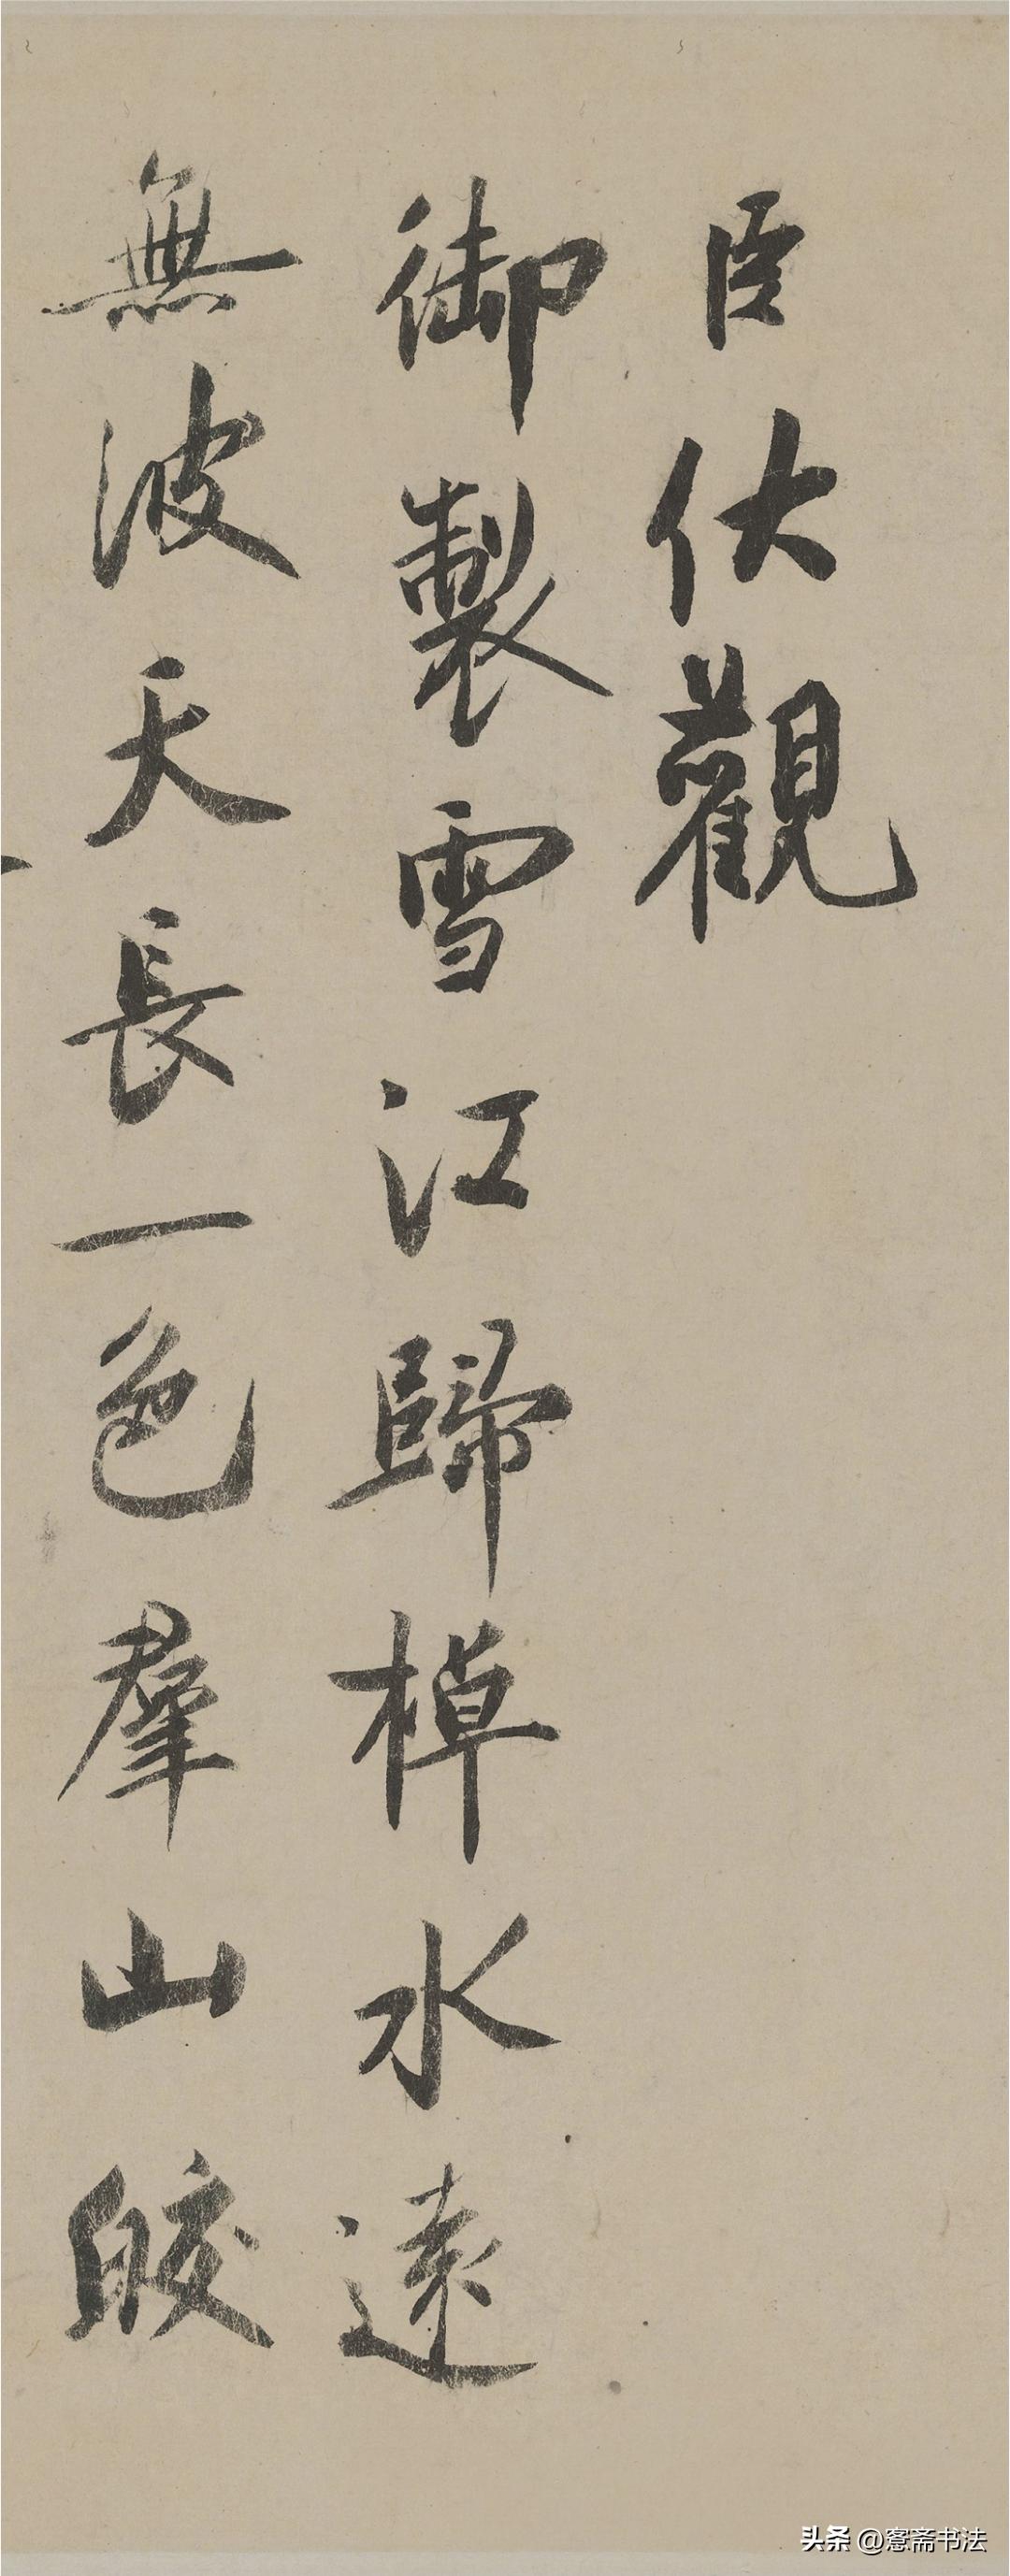 臣伏觀
御製雪江歸棹水遠
無波天長一色羣山皎
头条 @窓斋书法